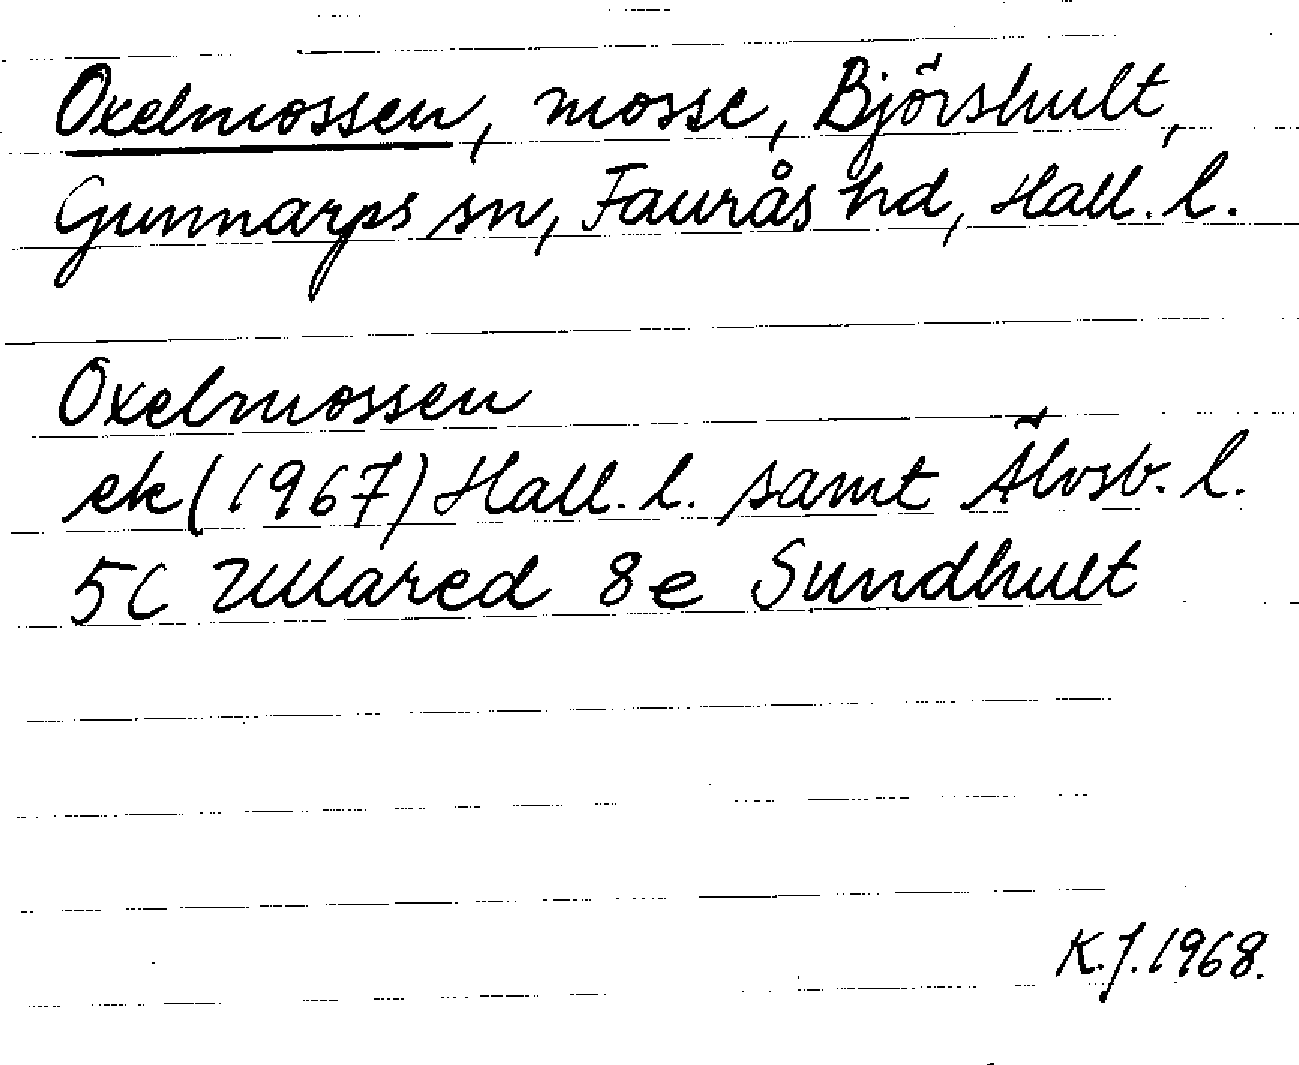 Oxelmossen, mosse, Björshult,
Gunnarps sn, Faurås hd, Hall. l.
Oxelmossen
ek (1967) Hall. l. samt Älvsb. l.
5C Ullared 8e Sundhult
K.J. 1968.